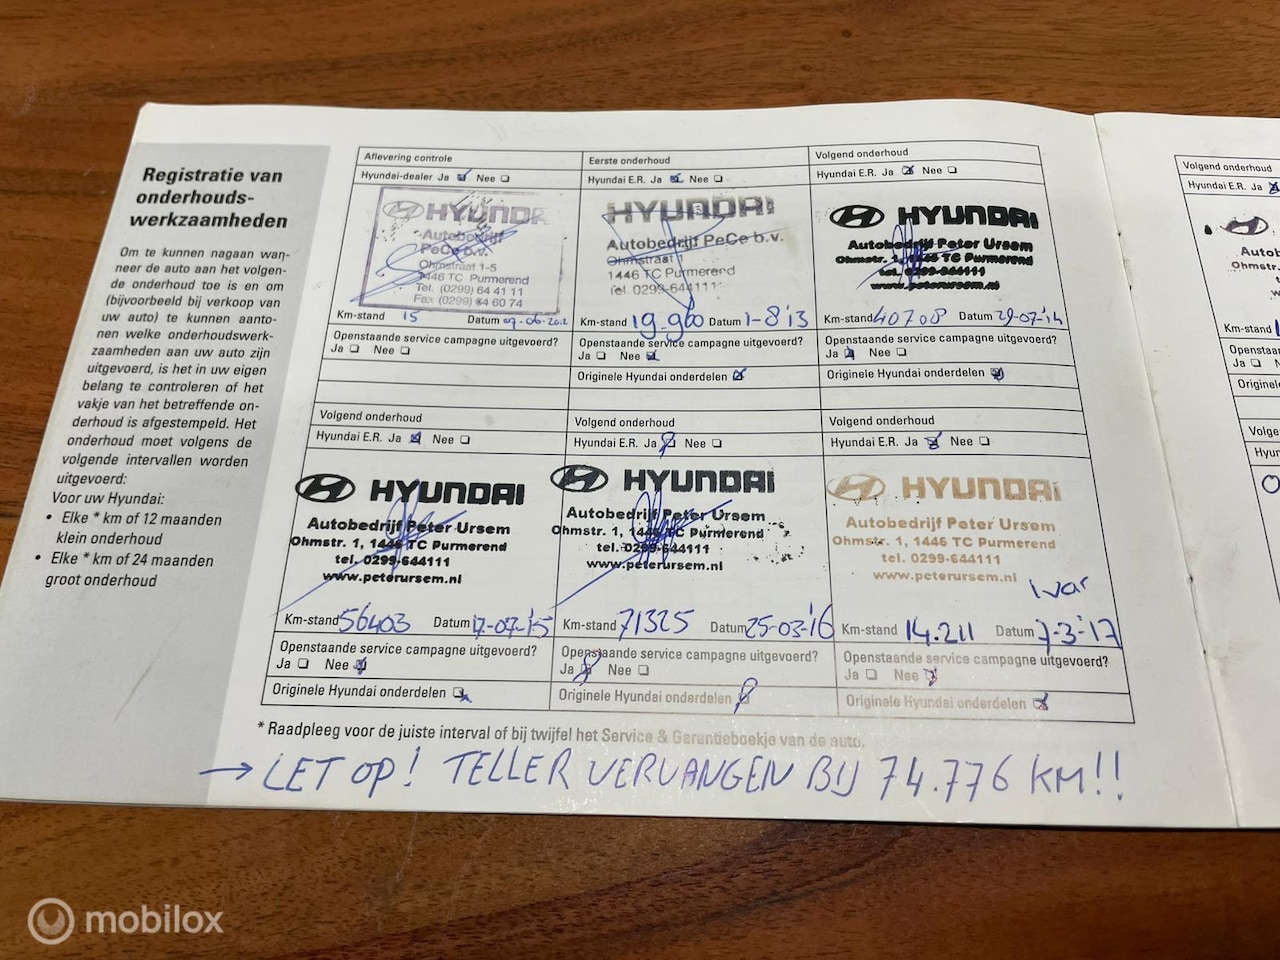 Registratie van
onderhouds-
werkzaamheden
Om te kunnen nagaan wan-
neer de auto aan het volgen-
de onderhoud toe is en om
(bijvoorbeeld bij verkoop van
uw auto) te kunnen aanto-
nen welke onderhoudswerk-
zaamheden aan uw auto zijn
uitgevoerd, is het in uw eigen
belang te controleren of het
vakje van het betreffende on-
derhoud is afgestempeld. Het
onderhoud moet volgens de
volgende intervallen worden
uitgevoerd:
Voor uw Hyundai:
• Elke * km of 12 maanden
klein onderhoud
• Elke * km of 24 maanden
groot onderhoud
Aflevering controle
Hyundai-dealer Ja Nee
HYUNDAI
Autobedrijf
PeCe b.v.
Ohmstraat 1-5
1446 TC Purmerend
Tel. (0299) 64 41 11
Fax (0299) 64 60 74
Km-stand 15 Datum 07-06-2012
Openstaande service campagne uitgevoerd?
Ja Nee
Eerste onderhoud
Hyundai E.R. Ja Nee
HYUNDAI
Autobedrijf PeCe b.v.
Ohmstraat 1
1446 TC Purmerend
tel. 0299-644111
Km-stand 19.960 Datum 1-8-'13
Openstaande service campagne uitgevoerd?
Ja Nee
Originele Hyundai onderdelen
Volgend onderhoud
Hyundai E.R. Ja Nee
HYUNDAI
Autobedrijf Peter Ursem
Ohmstr. 1, 1446 TC Purmerend
tel. 0299-644111
www.peterursem.nl
Km-stand 40708 Datum 29-07-'14
Openstaande service campagne uitgevoerd?
Ja Nee
Originele Hyundai onderdelen
Volgend onderhoud
Hyundai E.R. Ja Nee
HYUNDAI
Autobedrijf Peter Ursem
Ohmstr. 1, 1446 TC Purmerend
tel. 0299-644111
www.peterursem.nl
Km-stand 56403 Datum 17-07-'15
Openstaande service campagne uitgevoerd?
Ja Nee
Originele Hyundai onderdelen
Volgend onderhoud
Hyundai E.R. Ja Nee
HYUNDAI
Autobedrijf Peter Ursem
Ohmstr. 1, 1446 TC Purmerend
tel. 0299-644111
www.peterursem.nl
Km-stand 71325 Datum 25-03-'16
Openstaande service campagne uitgevoerd?
Ja Nee
Originele Hyundai onderdelen
Volgend onderhoud
Hyundai E.R. Ja Nee
HYUNDAI
Autobedrijf Peter Ursem
Ohmstr. 1, 1446 TC Purmerend
tel. 0299-644111
www.peterursem.nl
Ivar
Km-stand 14.211 Datum 7-3-'17
Openstaande service campagne uitgevoerd?
Ja Nee
Originele Hyundai onderdelen
* Raadpleeg voor de juiste interval of bij twijfel het Service & Garantieboekje van de auto.
→ LET OP! TELLER VERVANGEN BIJ 74.776 KM!!
Volgend onderhoud
Hyundai E.R. Ja
Ohmstr.
Km-stand
Ja
mobilox